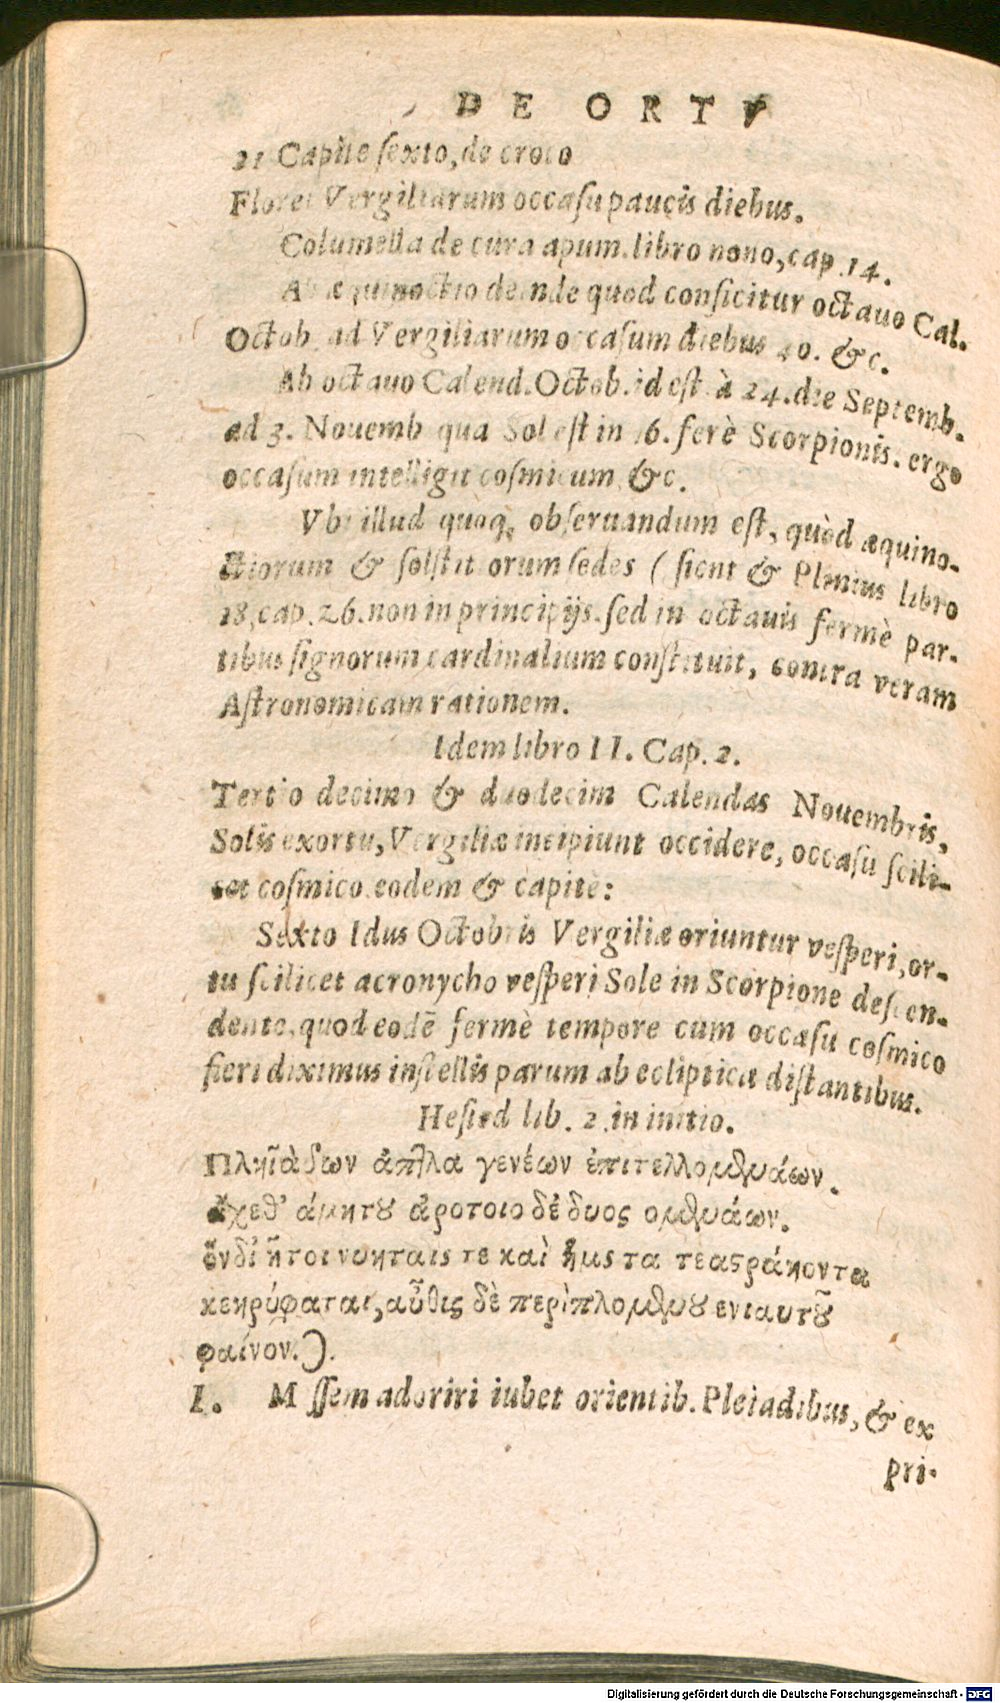 DE ORTV
21 Capite sexto, de croco
Floret Vergiliarum occasu paucis diebus.
Columella de cura apum. libro nono, cap. 14.
Ab æquinoctio deinde quod conficitur octauo Cal.
Octob. ad Vergiliarum occasum diebus 40. &c.
Ab octauo Calend. Octob. id est à 24. die Septemb.
ad 3. Nouemb qua Sol est in 16. ferè Scorpionis. ergo
occasum intelligit cosmicum &c.
Vbi illud quoq; obseruandum est, quòd æquino-
ctiorum & solstitiorum sedes (sicut & Plinius libro
18, cap. 26. non in principijs. sed in octauis fermè par-
tibus signorum cardinalium constituit, contra veram
Astronomicam rationem.
Idem libro II. Cap. 2.
Tertio decimo & duodecim Calendas Nouembris,
Solis exortu, Vergiliæ incipiunt occidere, occasu scili-
cet cosmico. eodem & capite:
Sexto Idus Octobris Vergiliæ oriuntur vesperi, or-
tu scilicet acronycho vesperi Sole in Scorpione descen-
dente, quod eodē fermè tempore cum occasu cosmico
fieri diximus in stellis parum ab ecliptica distantibus.
Hesiod lib. 2. in initio.
Πληϊάδων ἀτλα γενέων ἐπιτελλομθυάων.
ἄχεθ' ἀμητȣ ἀροτοιο δέ δυος ομθυάων.
ὅνδἰ ἤτοι νυηταις τε καὶ ἤμς τα τεαςράκοντα
κεκρύφαται, αὖθις δὲ περὶπλομθυȣ ενιαυτȣ͂
φαίνον.).
I. Messem adoriri iubet orientib. Pleiadibus, & ex
pri-
Digitalisierung gefördert durch die Deutsche Forschungsgemeinschaft - DFG